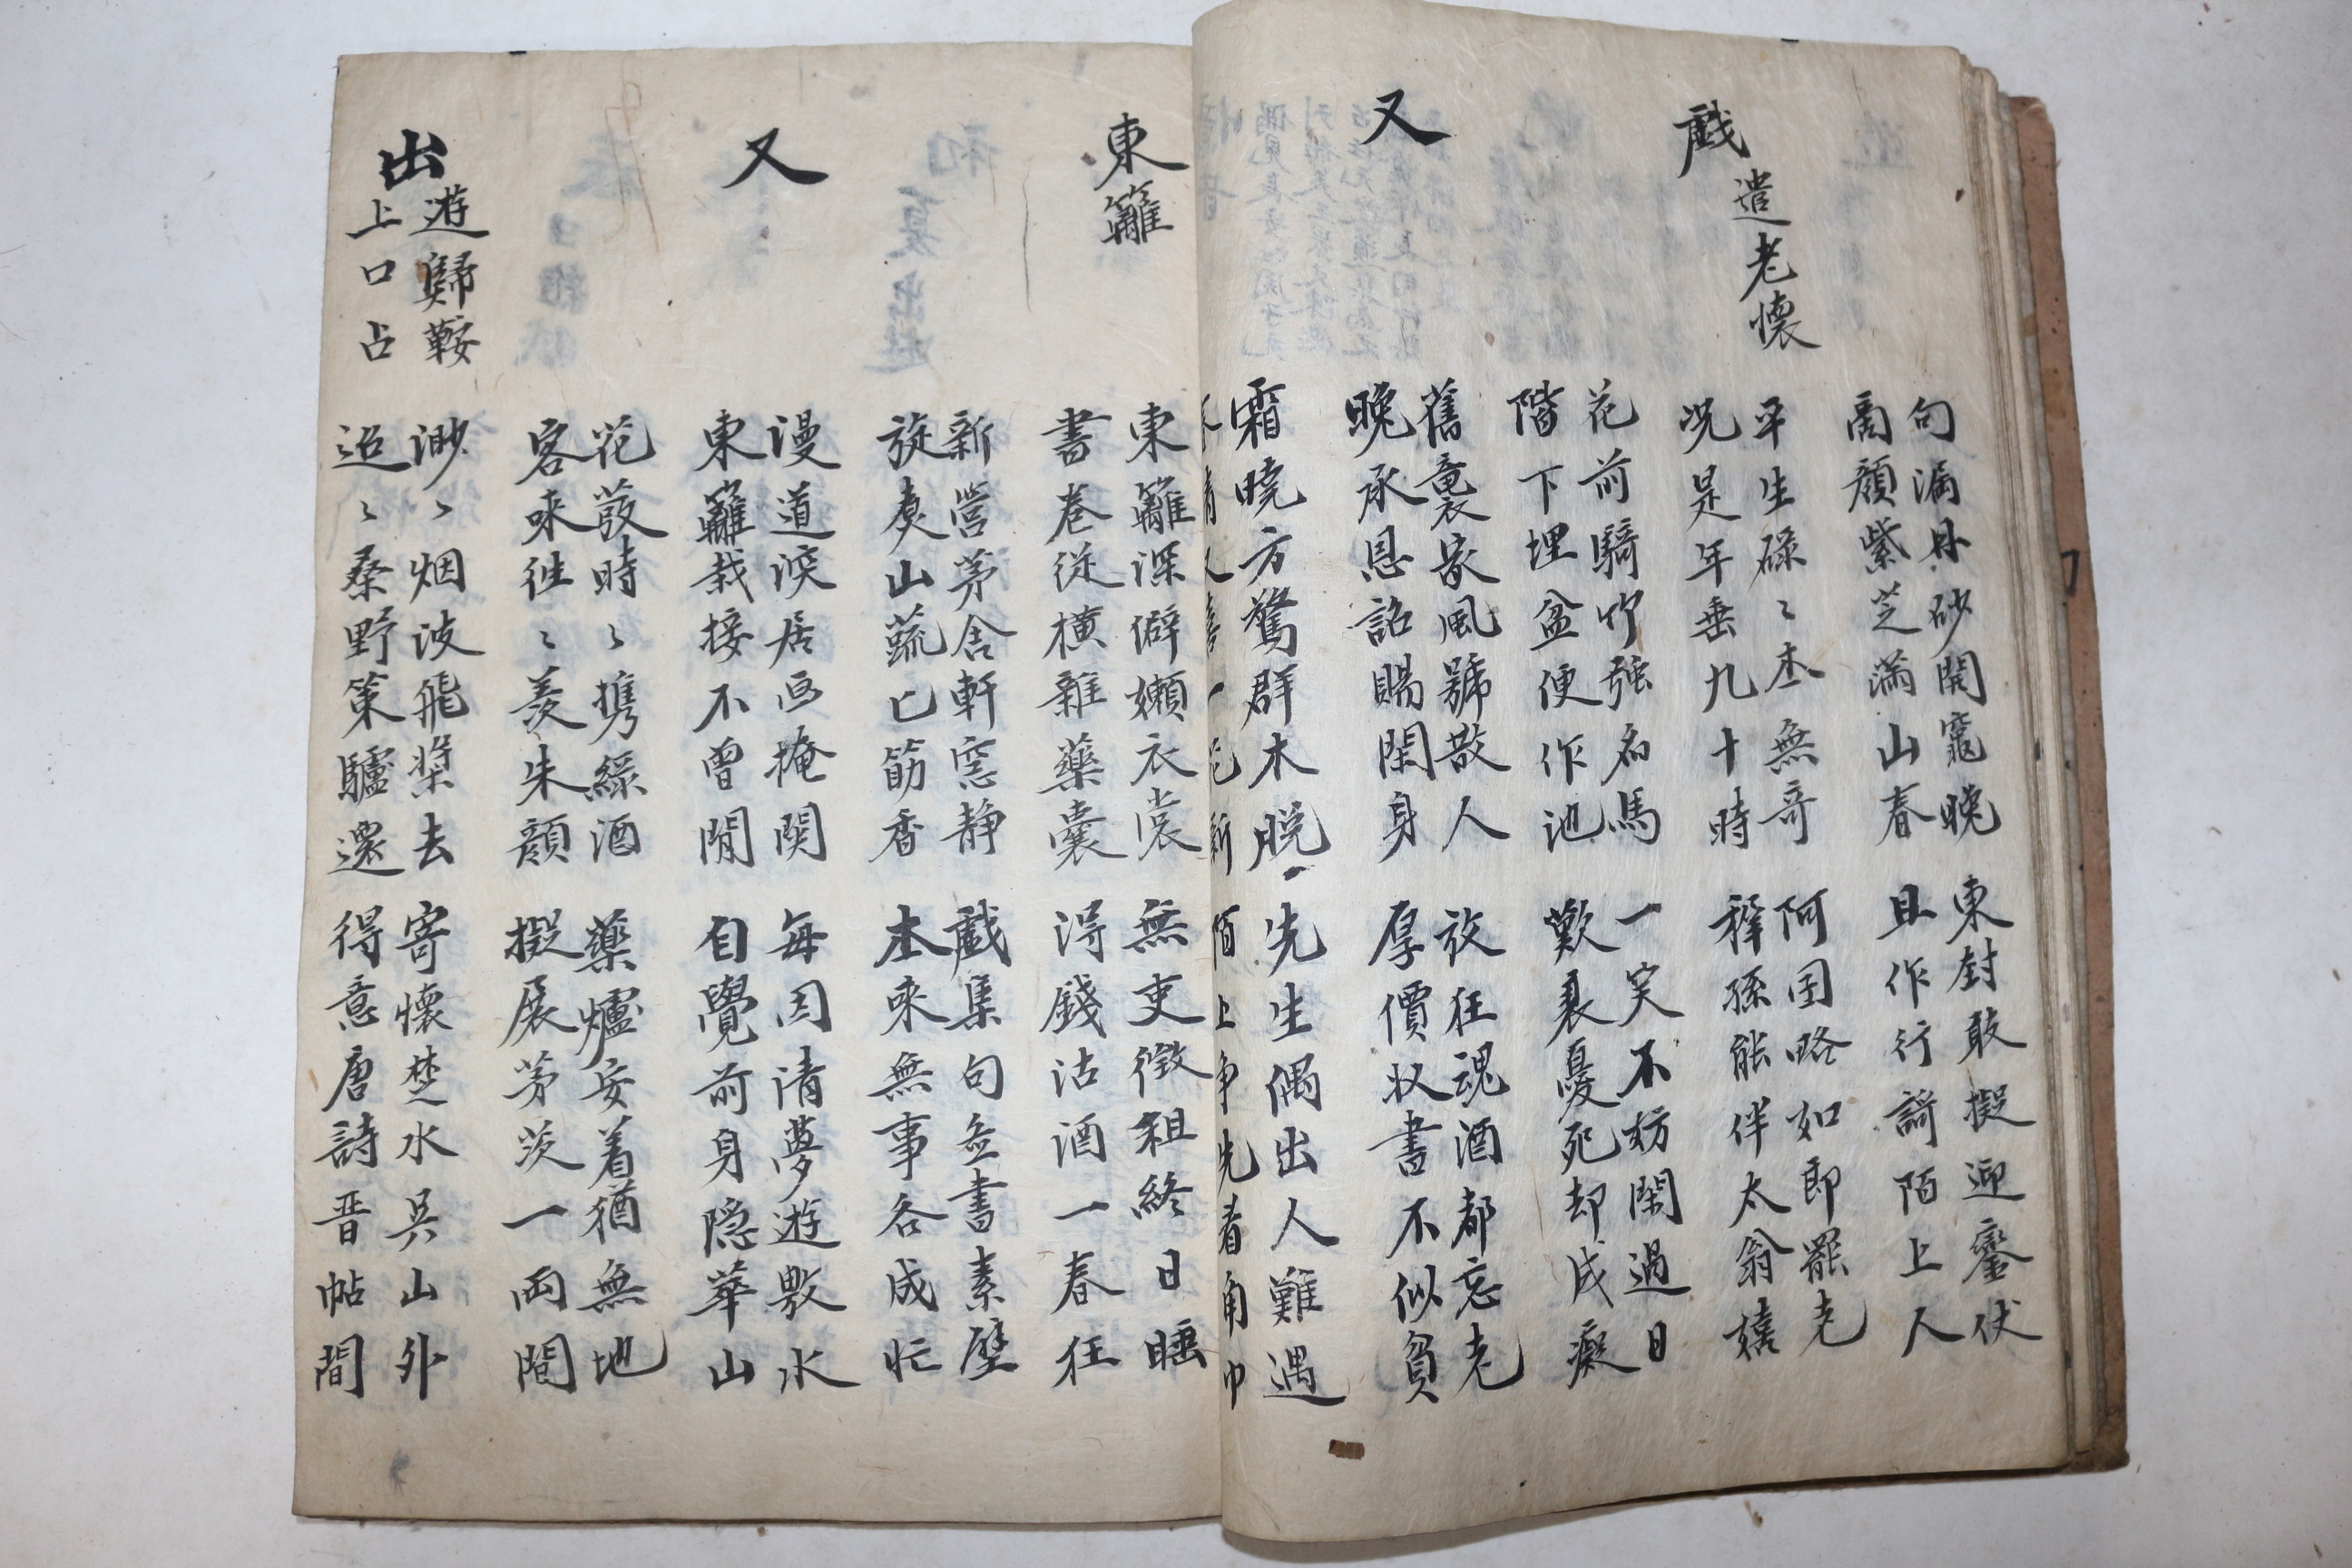 句漏丹砂開竈晩 東封敢擬迎鑾伏
商顔紫芝滿山春 且作行謌陌上人
戲遣老懷
平生碌〻本無奇 阿囝略如郎罷老
况是年垂九十時 稺孫能伴太翁嬉
花前騎竹強名馬 一笑不妨閑過日
階下埋盆便作池 歎衰憂死却成癡
又
舊襲家風號散人 放狂魂酒都忘老
晩承恩詔賜閑身 厚價收書不似貧
霜曉方驚群木脫 先生偶出人難遇
晴又喜一花新 陌上爭先看角巾
東籬
東籬深僻嬾衣裳 無吏徵租終日睡
書卷從橫雜藥囊 得錢沽酒一春狂
新營茅舍軒窓静 戲集句書素壁
旋煑山蔬匕筯香 本來無事各成忙
又
漫道深居画掩関 每因清夢遊敷水
東籬栽接不曾閒 自覺前身隐華山
花發時〻携綠酒 藥爐安着猶無地
客來往〻羨朱顔 擬展茅茨一兩間
出遊歸鞍
上口占
渺〻烟波飛槳去 寄懷楚水吳山外
迢〻桑野策驢還 得意唐詩晋帖間